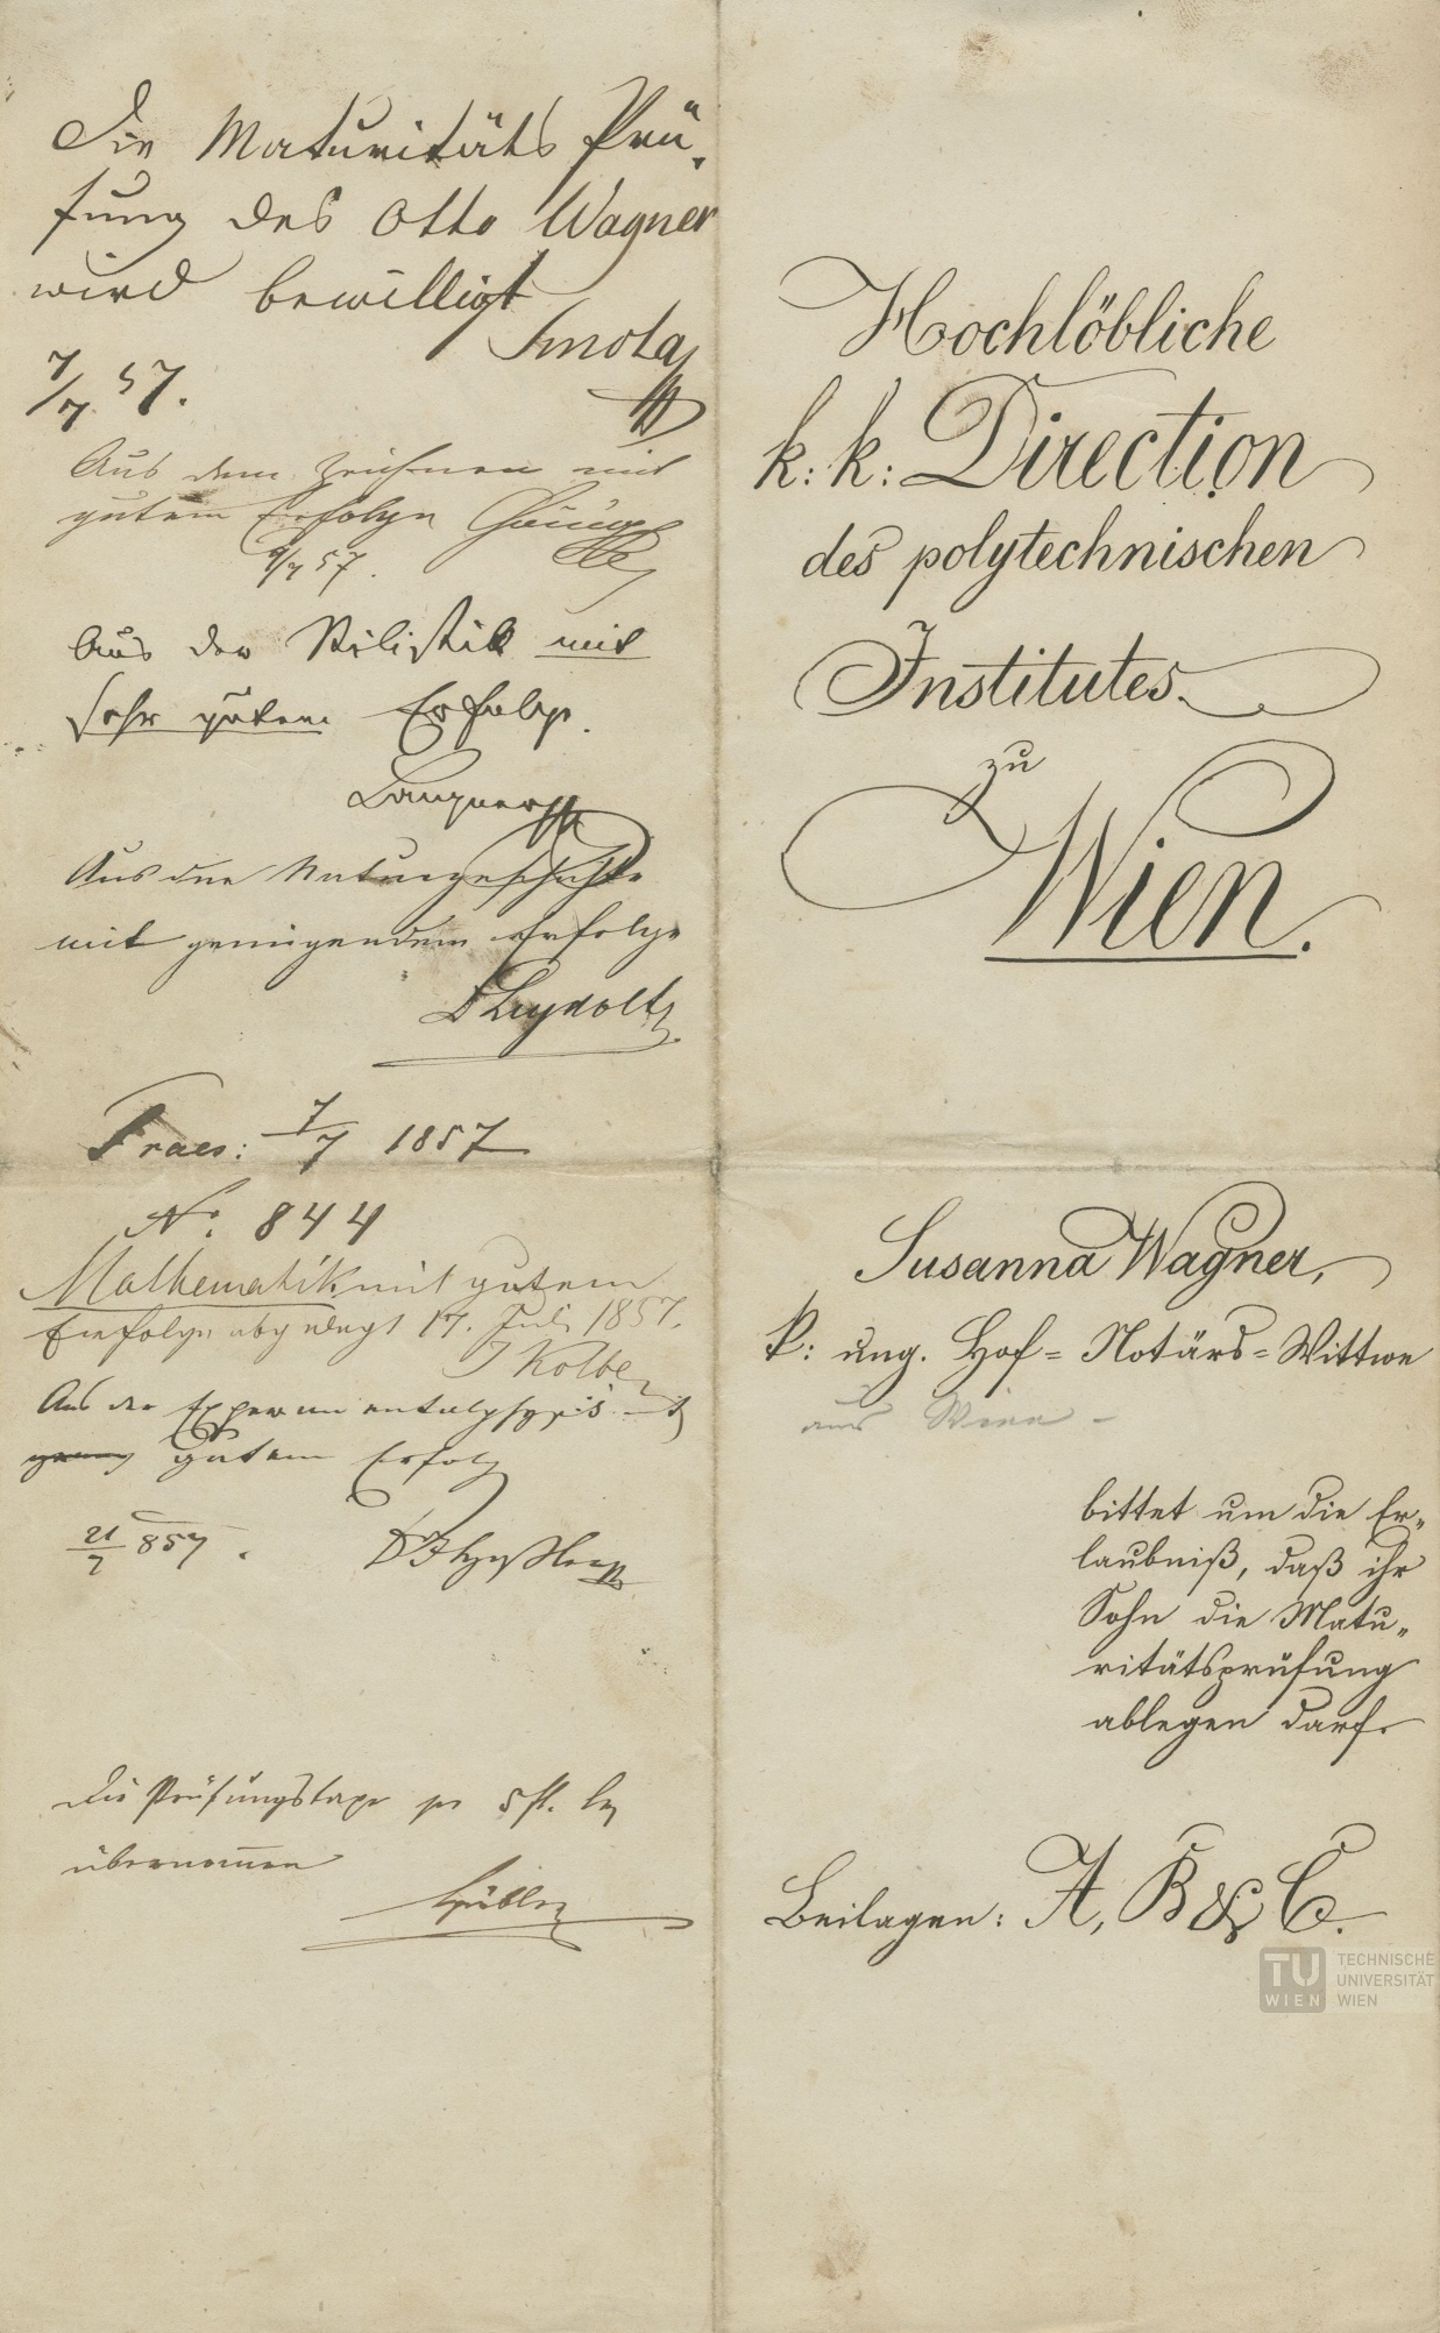 Die Maturitäts Prü-
fung des Otto Wagner
wird bewilligt
Smola
7/7 57.
Aus dem Zeichnen mit
gutem Erfolge
9/7 57.
Aus der Stilistik mit
sehr gutem Erfolge.
Langner
Aus der Naturgeschichte
mit genügendem Erfolge
D Leydolt
Praes: 7/7 1857
No. 844
Mathematik mit gutem
Erfolge abgelegt 17. Juli 1857.
J Kolbe
Aus der Experimentalphysik mit
gutem Erfolg
21/7 857.
Dr F Heßler
Die Prüfungstaxe per 5 fl.
übernommen
Hochlöbliche
k: k: Direction
des polytechnischen
Institutes
zu
Wien.
Susanna Wagner,
k: ung. Hof=Notärs=Wittwe
aus Wien
bittet um die Er=
laubniß, daß ihr
Sohn die Matu=
ritätsprüfung
ablegen darf.
Beilagen: A, B & C.
TU WIEN
TECHNISCHE
UNIVERSITÄT
WIEN